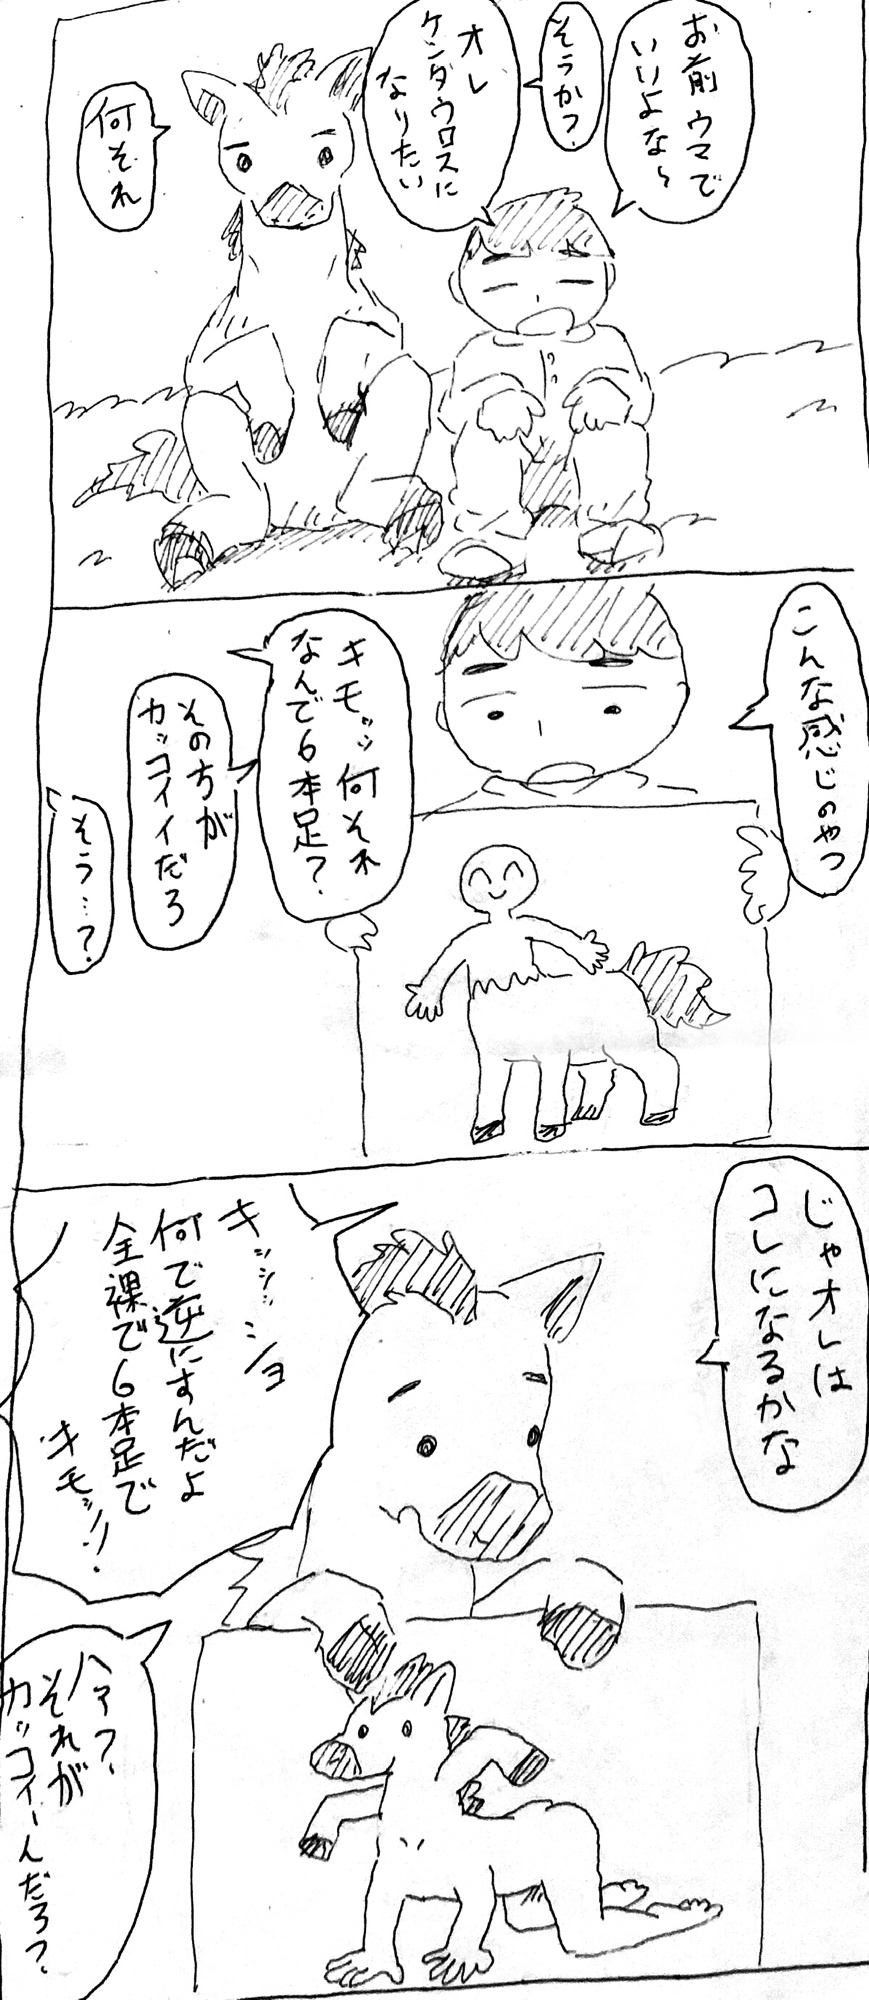 お前ウマで
いいよな〜
そうか?
オレ
ケンダウロスに
なりたい
何それ
こんな感じのやつ
キモッッ何それ
なんで6本足?
その方が
カッコイイだろ
そう…?
じゃオレは
コレになるかな
キッシッッ…ショ
何で逆にすんだよ
全裸で6本足で
キモッッ!
ハァ?
それが
カッコイーんだろ?